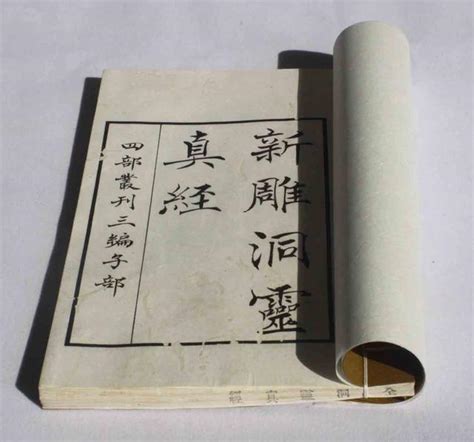 新雕洞靈
真経
四部叢刊三編子部